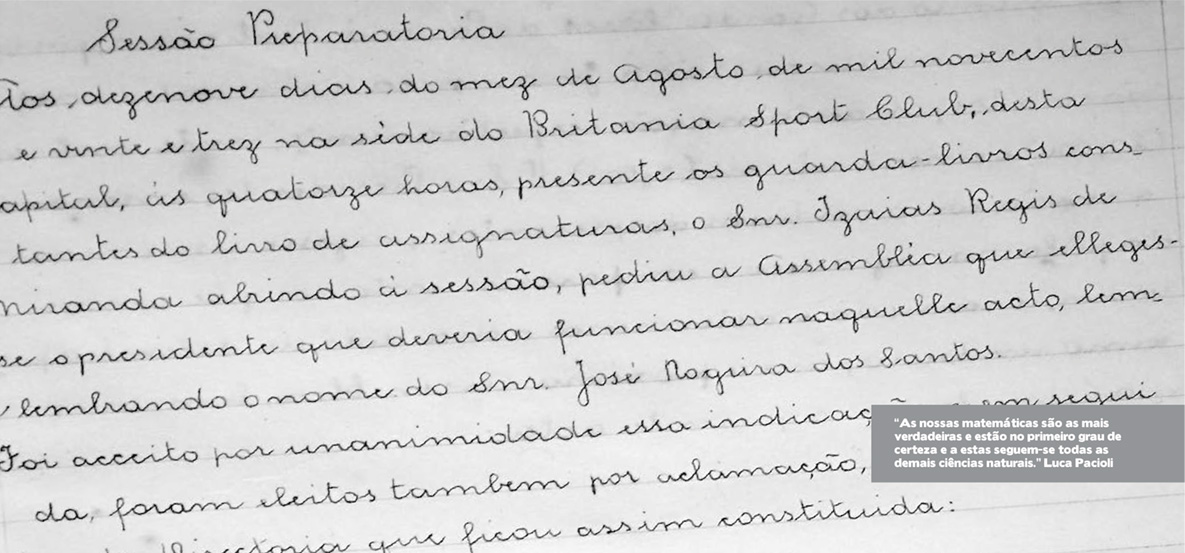 Sessão Preparatoria
Aos dezenove dias do mez de Agosto de mil novecentos
e vinte e trez na séde do Britania Sport Club, desta
apital, ás quatorze horas, presente os guarda-livros cons-
tantes do livro de assignaturas, o Snr. Izaias Regis de
Miranda abrindo á sessão, pediu a Assembléa que elleges-
se o presidente que deveria funccionar naquelle acto, lem-
lembrando o nome do Snr. José Nogueira dos Santos.
Foi acceito por unanimidade essa indicaçã em segui
da, foram eleitos tambem por aclamação,
Directoria que ficou assim constituida:
"As nossas matemáticas são as mais
verdadeiras e estão no primeiro grau de
certeza e a estas seguem-se todas as
demais ciências naturais." Luca Pacioli